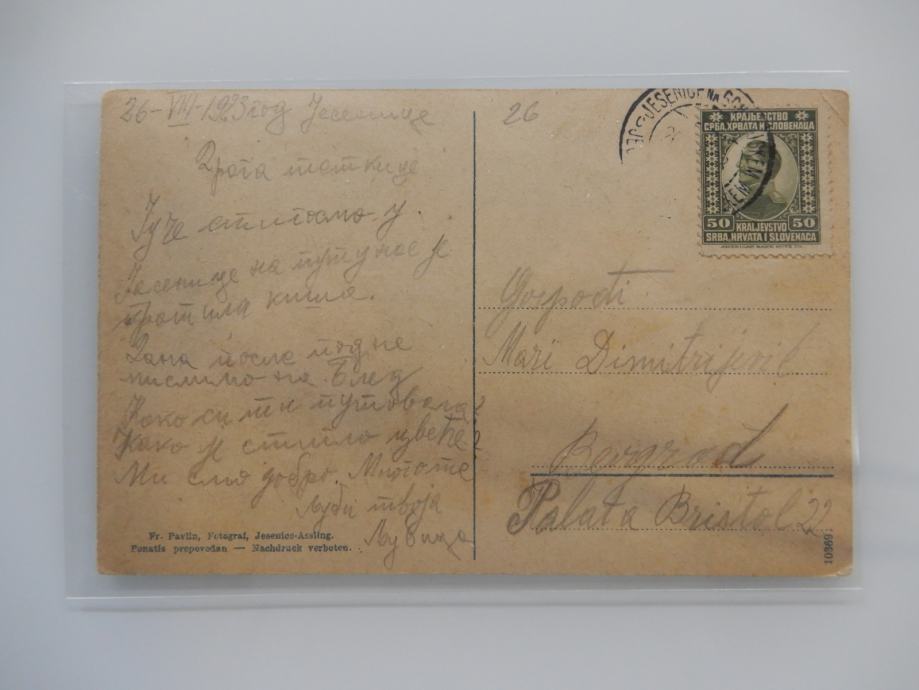 26-VIII-1923 год Јесенице
26
Драга теткице
Јуче стигосмо у
Јесенице на путу нас је
пратила киша.
Данас после подне
мислимо на Блед
Како си ти путовала?
Како је стигло цвеће?
Ми смо добро. Много те
љуби твоја
Љубица
Fr. Pavlin, Fotograf, Jesenice-Assling.
Ponatis prepovedan — Nachdruck verboten.
JESENICE NA GOR
КРАЉЕВСТВО
СРБА, ХРВАТА И СЛОВЕНАЦА
50 50
KRALJEVSTVO
SRBA, HRVATA I SLOVENACA
Gospođi
Mari Dimitrijević
Beograd
Palata Bristol 22
10869